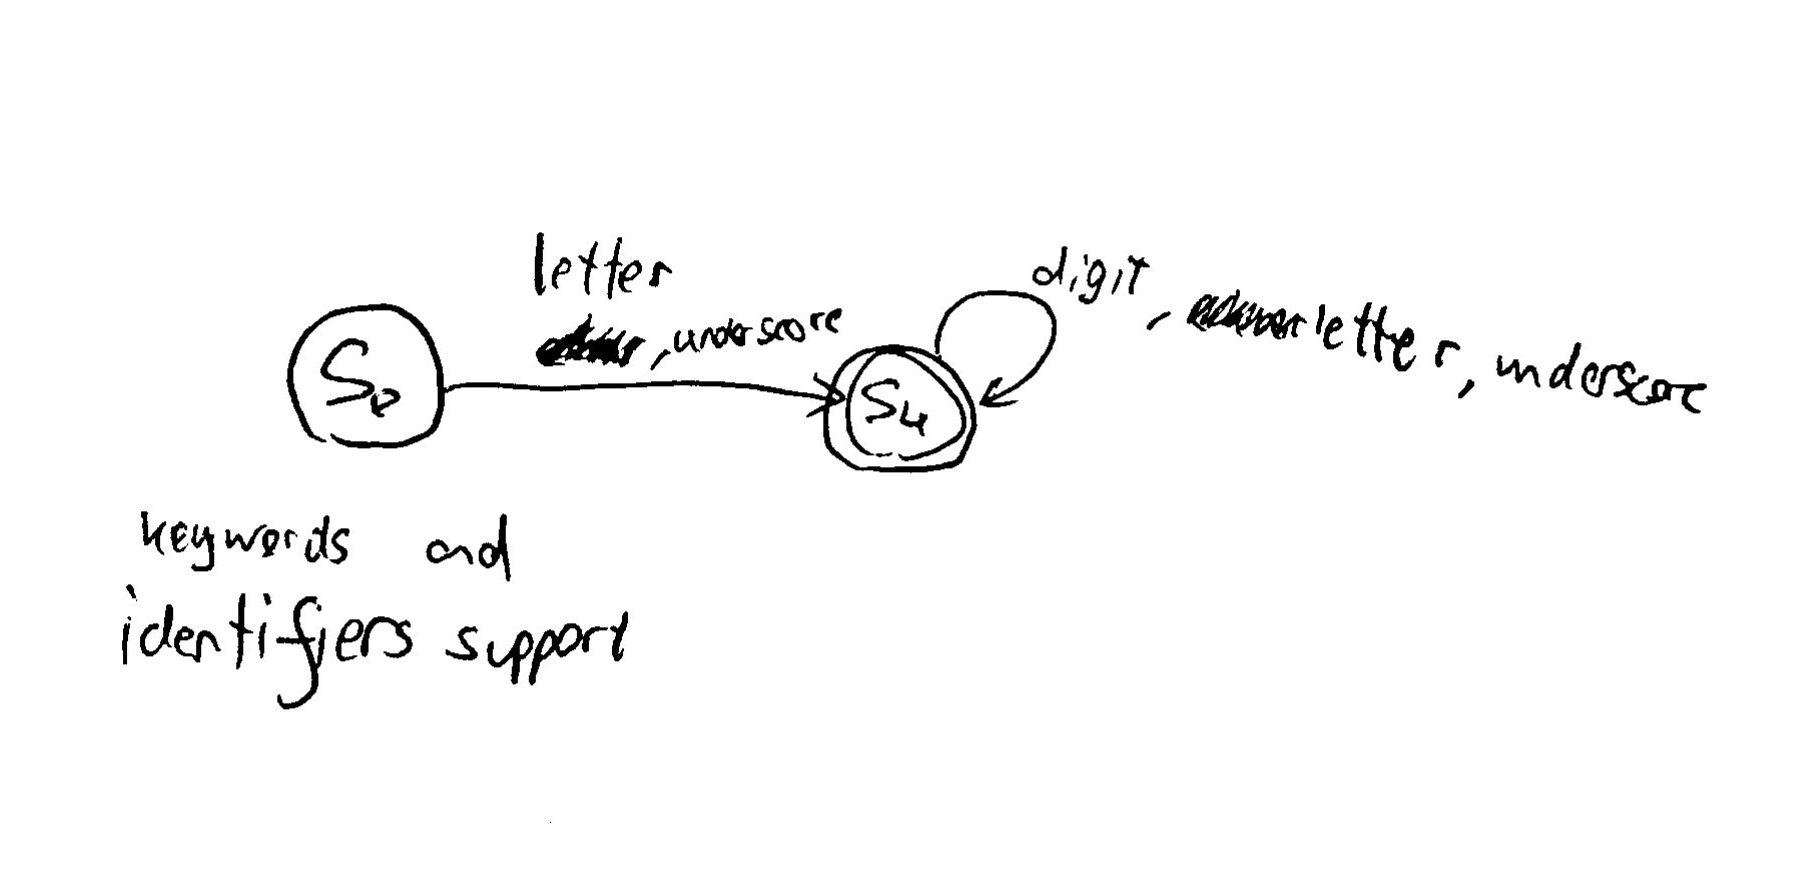 letter
, underscore
digit, letter, underscore
S0
S4
keywords and
identifiers support